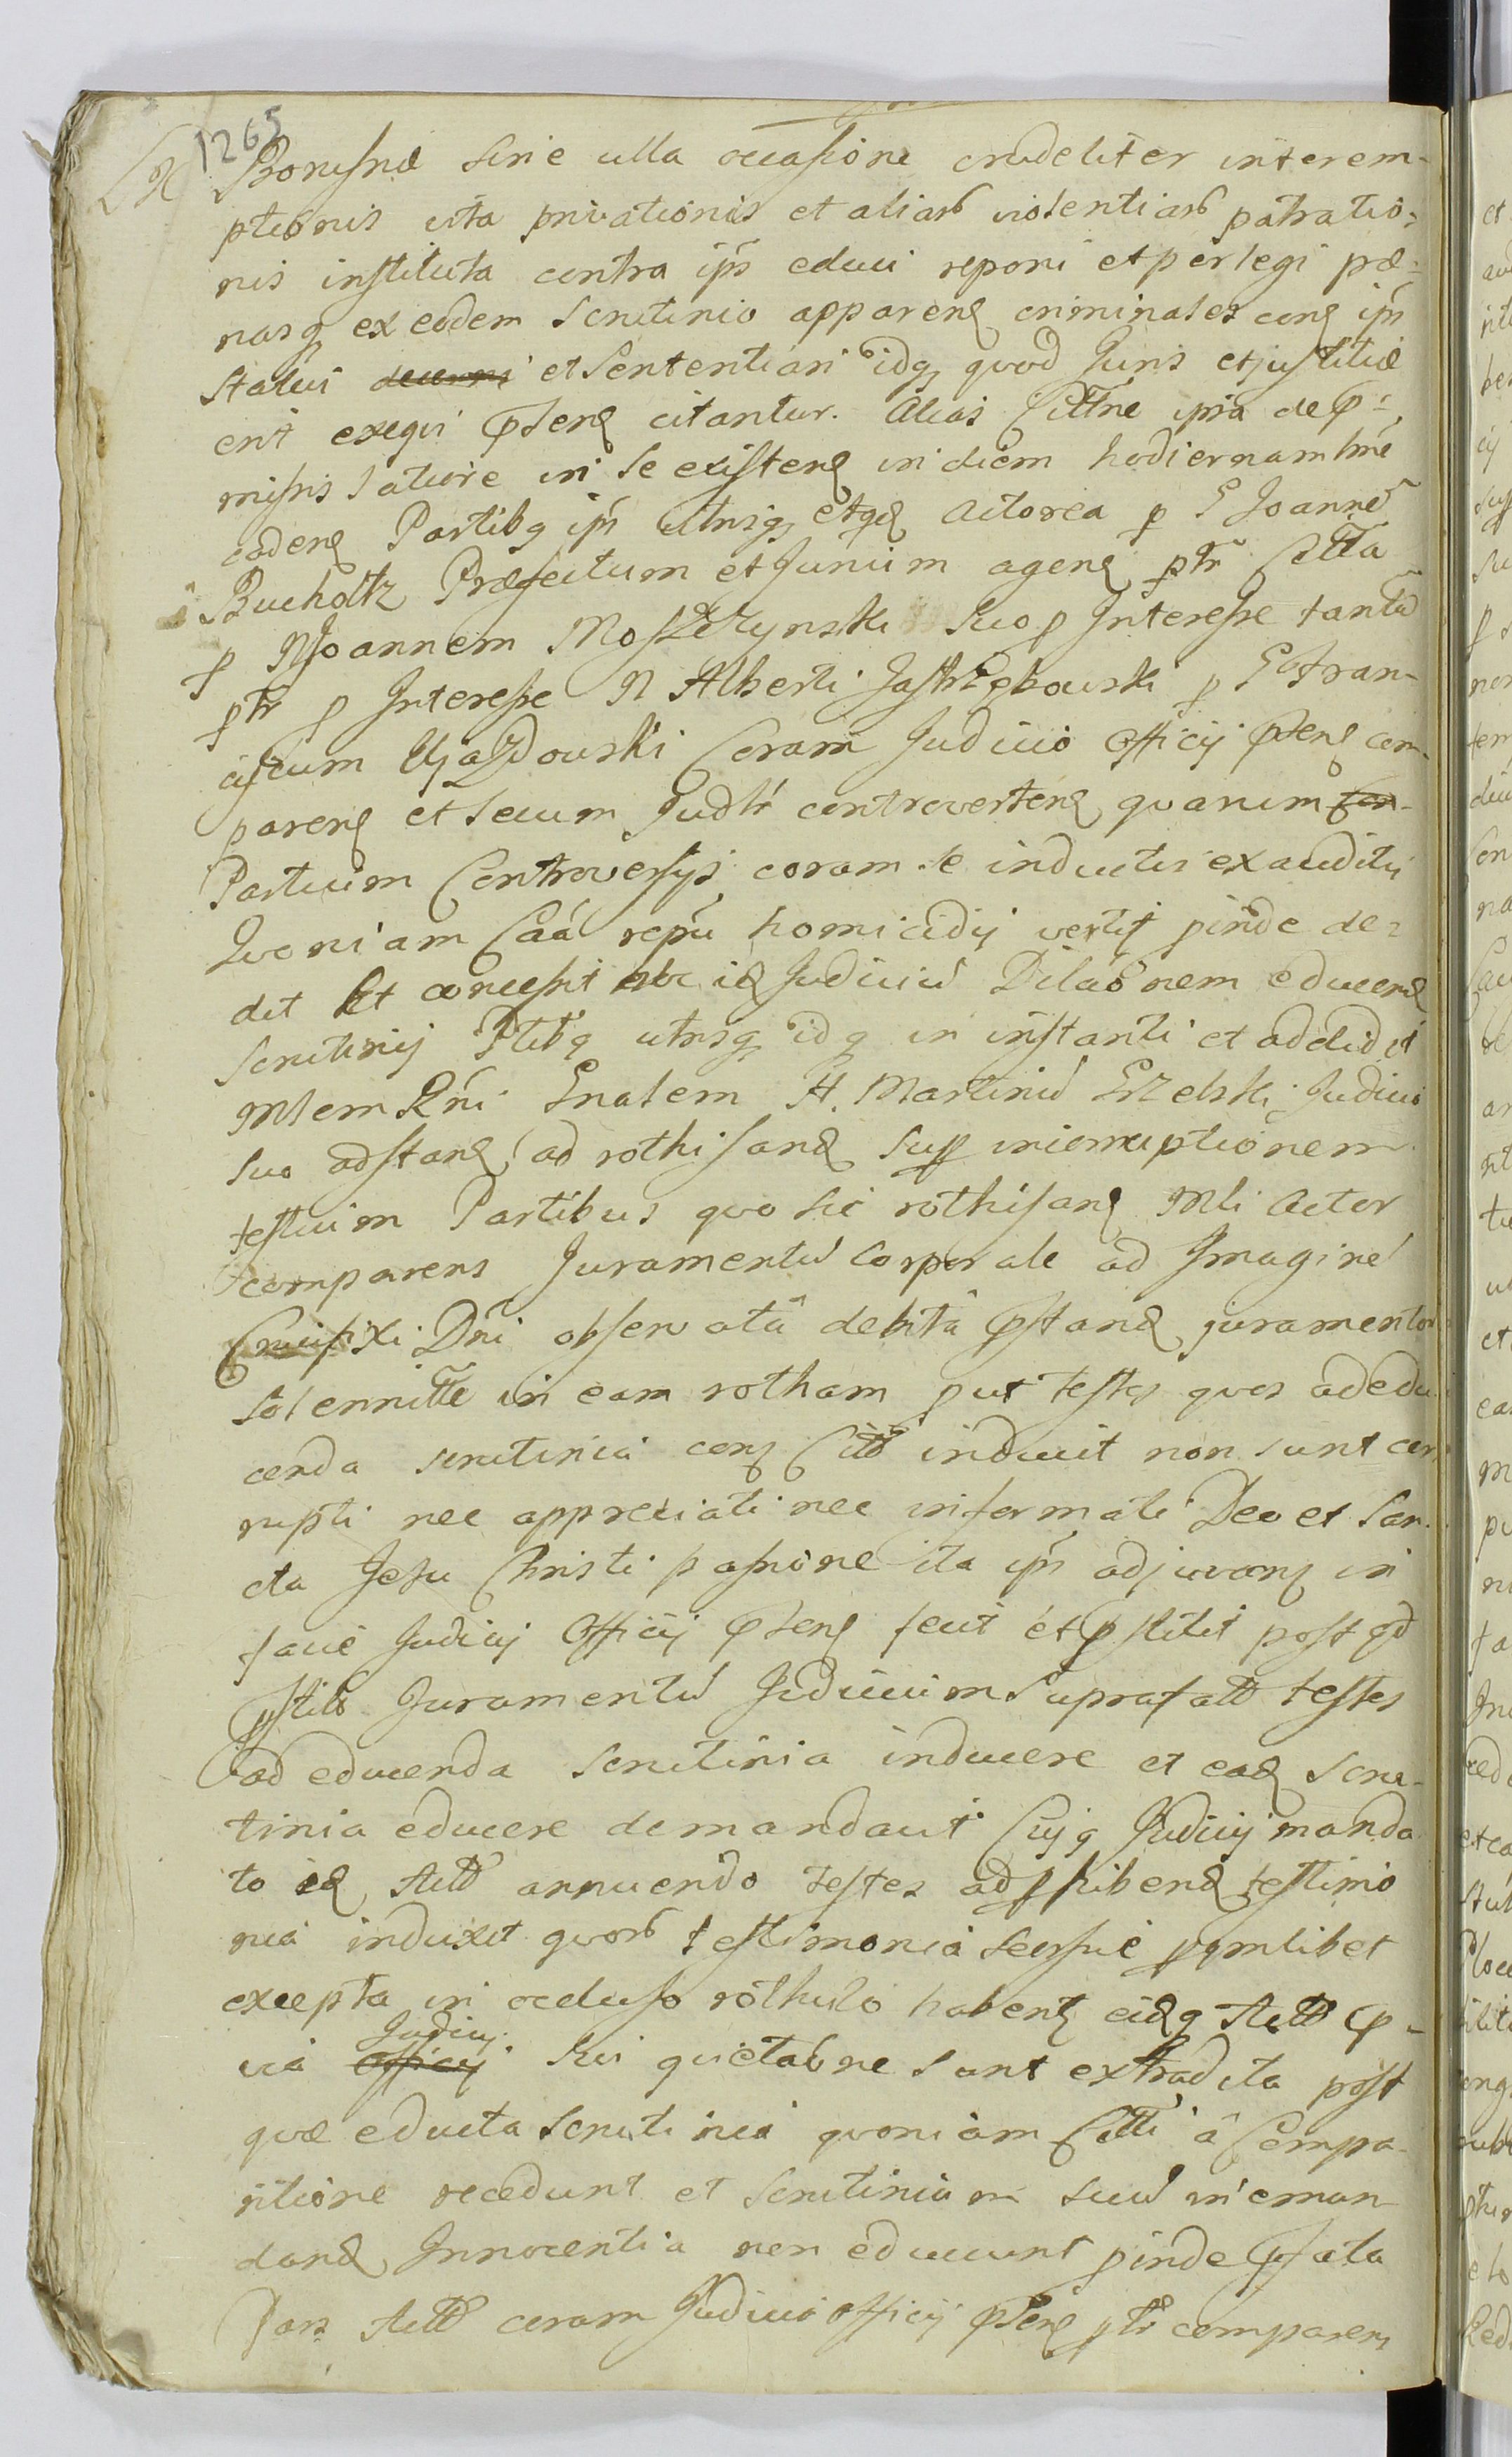 1265
Borusna sine ulla occasione crudeliter interem-
ptionis vita privationis et aliarb violentiarb patratio=
nis instituta contra ips educi reponi et perlegi poe=
nasq ex eodem Scrutinio apparen criminales con ips
Statui decerni et Sententiari idq quod Juris et justitiae
erit exequi citantur. Alias Cittne ipsa de
missis latiore in se existen in diem hodiernam
caden Partibq ips utrisq Actorea p G Joanne
Bucholtz Praefectum et Jurium agen ptr Citta
p N Joannem Moszczynski suo p Interesse tantu
ptr p Interesse N Alberti Jastrzębowski p G Fran-
ciscum Ujazdowski Coram Judicio Officij com-
paren et secum Judlr controverten quarum
Partium Controversijs coram se inductis ex auditis
Quoniam Caa homicidij vertit pinde de=
dit Et concessit id Judiciu Dilaonem educend
Scrutinij Ptibq utrisq idq in instanti et addidit
Mlem Rni Gnalem H. Martinu Gzelski Judicio
suo adstan ad rothisand sup incorruptionem
testium Partibus quo sic rothisan Mli Actor
comparens Juramentu Corporale ad Imagine
Crucifixi Dni observata debita pstand juramentor
Solennitte in eam rotham put testes quos ad edu
cenda scrutinia con Citt induxit non sunt cor
rupti nec appreciati nec informati Deo et San-
cta Jesu Christi passione ita ips adjuvan in
facie Judicij Officij fecit et pstitit post qd
pstit Juramentu Judicium suprafatt testes
ad educenda Scrutinia inducere et ead Scru-
tinia educere demandavit Cujq Judicij manda
to id Actt annuendo testes ad phibend testimo
nia induxit quorb testimonia seorsive pqmlibet
excepta in occluso rothulo habent eidq Actt p-
via Officij Judicij sui quietaone sunt extradita post
quae educta Scrutinia quoniam Citti a Compa-
ritione recedunt et Scrutinium suu in eman-
dand Innocentia non educunt pinde pfata
Pars Actt coram Judicio Officij ptr comparens